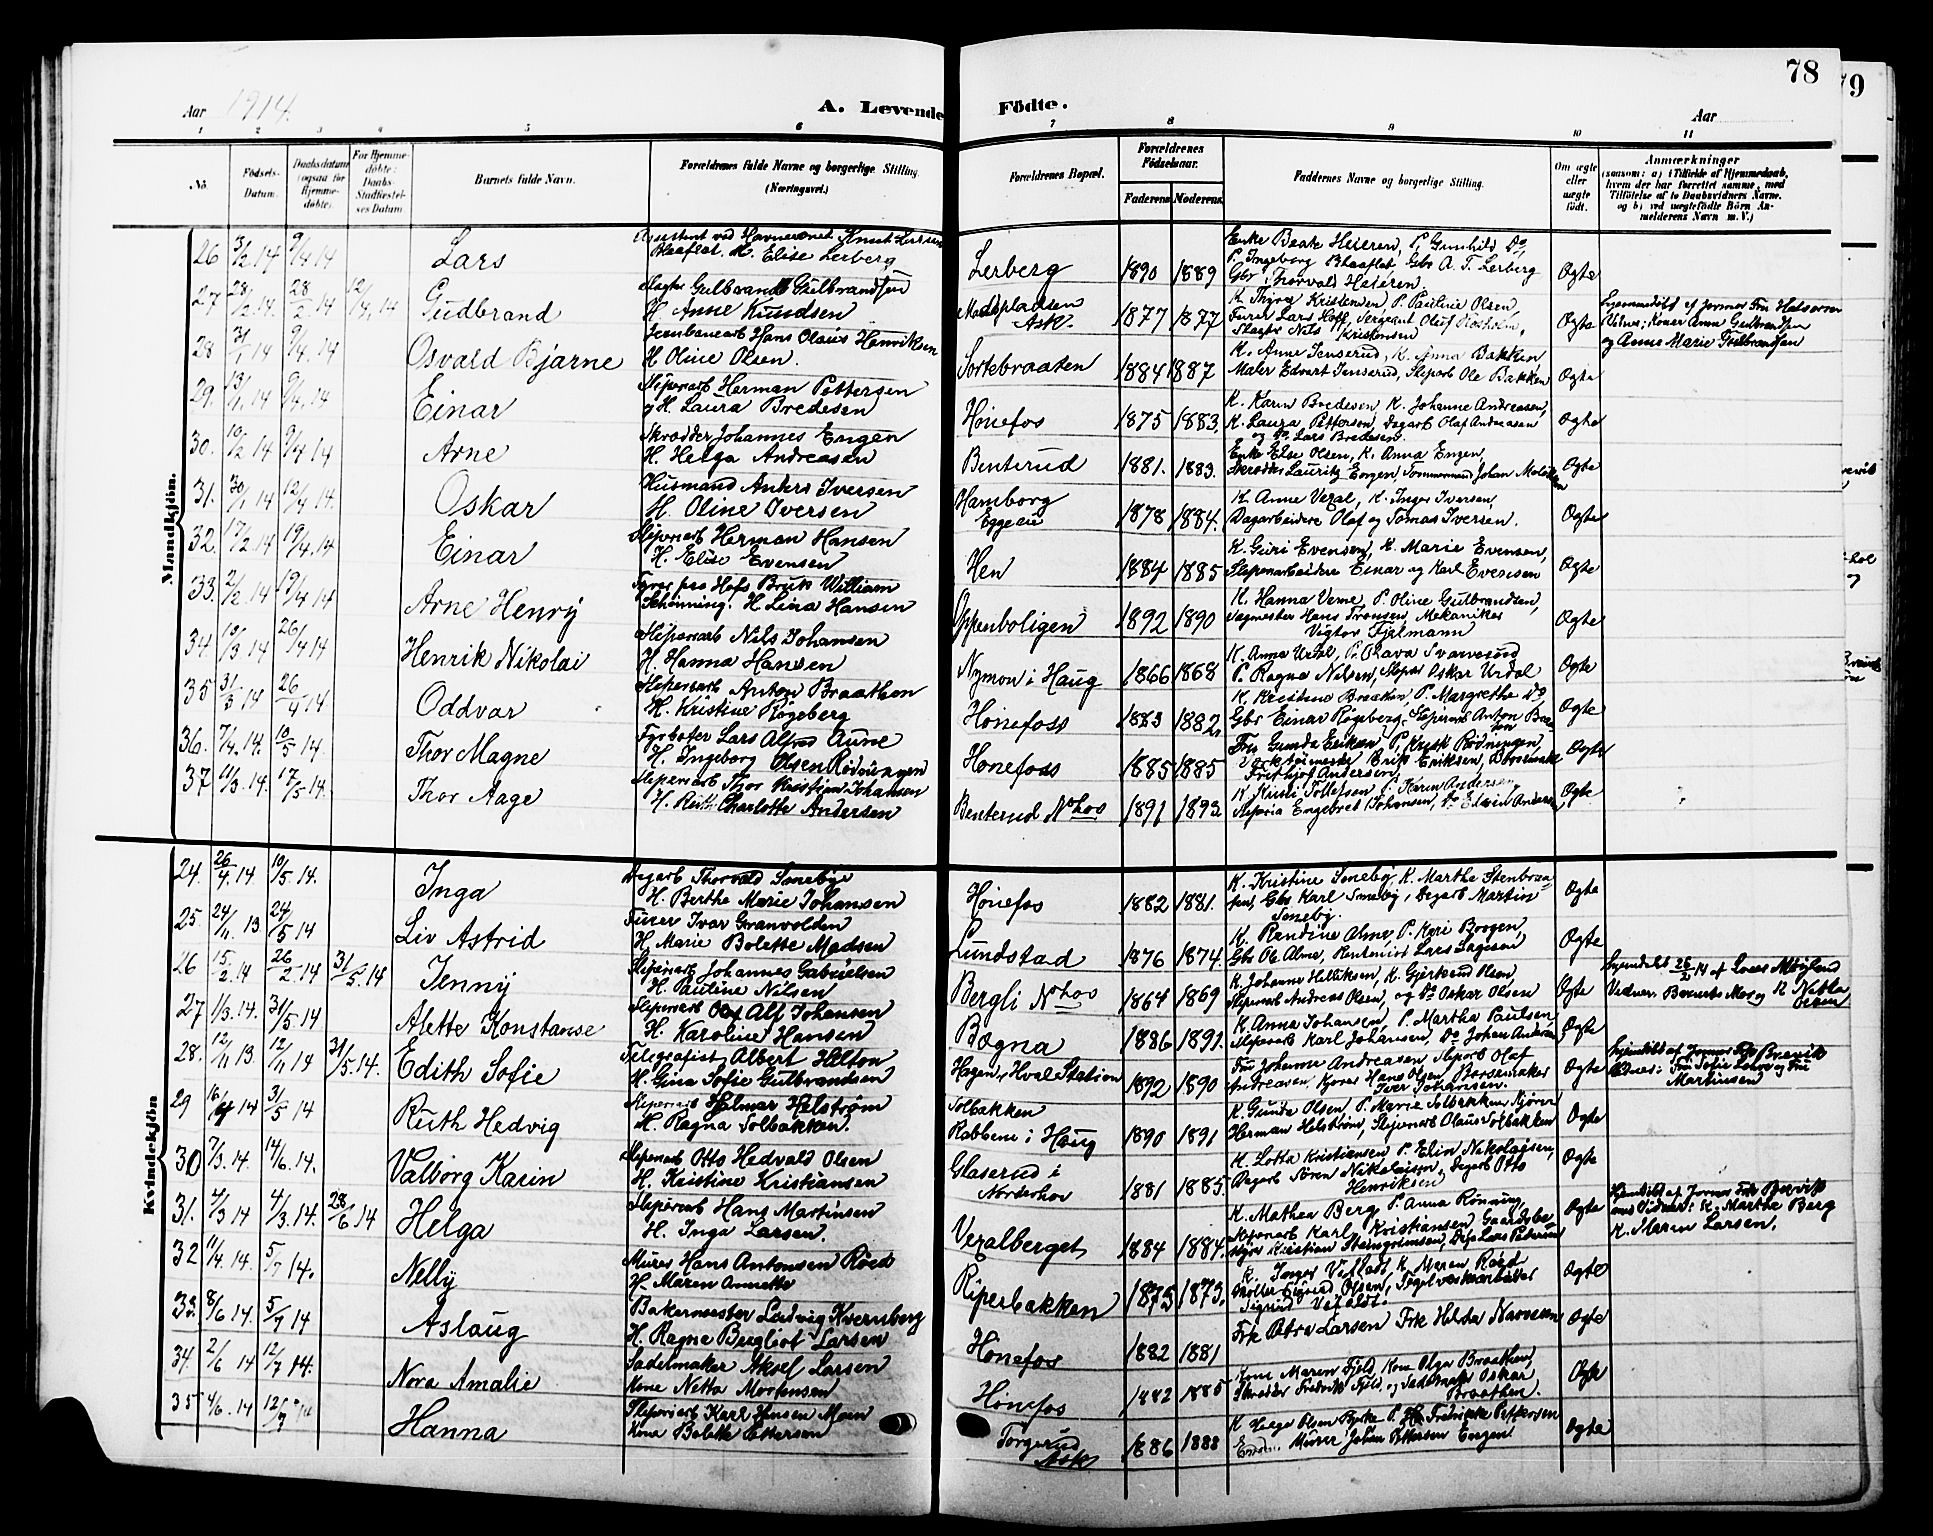 78
79
Aar 1914.
A. Levende Födte.
Aar
1 2 3 4 5 6 7 8 9 10 11
No.
Födsels-Datum.
Daabsdatum (ogsaa for Hjemme-döbte).
For Hjemme-döbte: Daabs-Stadfæstel-ses Datum
Barnets fulde Navn.
Forældrenes fulde Navne og borgerlige Stilling. (Næringsvei.)
Forældrenes Bopæl.
Forældrenes Födselsaar.
Faderens Moderens
Faddernes Navne og borgerlige Stilling.
Om ægte eller uægte født.
Anmærkninger
(saasom: a) i Tilfælde af Hjemmedaab, hvem der har forrettet samme, med Tilföielse af to Daabsvidners Navne, og b) ved uægtefödte Börn An-melderens Navn m. V.)
Mandkjön.
26 3/2 14 9/4 14 Lars
Assistent ved Havnevæsnet Knut
H. Elise Lerberg
Lerberg 1890 1889
Enke Beate Heieren, P. Gunhild Do,
P. Ingeborg Blaaflat, Gbr A. T. Lerberg
Gbr Thorvald Heieren.
Ægte
27 28/2 14 28/2 14 12/4 14 Gudbrand
Slagter Gulbrand Gulbrandsen
H. Anne Knudsen
Ask. 1877 1877
K. Thyra Kristensen P. Pauline Olsen,
Furer Lars Hoff, Sergeant Oluf
Slagter Nils Kristensen
Ægte
Hjemmedöbt af Jormor Fru Halvorsen
Vidner; Koner Anne Gulbrandsen
og Anne Marie Gulbrandsen
28 31/1 14 9/4 14 Osvald Bjarne
Jernbanearb Hans Olaus Henriksen
H. Oline Olsen.
Sortebraaten 1884 1887
K. Anne Jenserud, K. Anna Bakken
Maler Edvart Jenserud, Sliparb Ole Bakken
Ægte
29. 13/1 14 9/4 14 Einar
Sliperarb Herman Pettersen
og H. Laura Bredesen
Hönefos 1875 1883.
K. Karin Bredesen, K. Johanne Andreasen,
K. Laura Pettersen, Dagarb Olaf Andreasen
og Do Lars Bredesen.
Ægte
30. 10/2 14 9/4 14 Arne
Skrædder Johannes Engen
H. Helga Andreasen
Benterud 1881. 1883.
Enke Else Olsen, K. Anna Engen,
Skrædder Lauritz Engen, Tømmermand Johan
Ægte
31. 30/1 14 12/4 14. Oskar
Husmand Anders Iversen
H. Oline Iversen
Hamborg
Eggeeie 1878 1884.
K. Anne Vegal, K. Inger Iversen,
Dagarbeidere Olaf og Tomas Iversen.
Ægte
32. 17/2 14 19/4 14 Einar
Sliperarb Herman Hansen
H. Elise Evensen
Hen 1884 1885
K. Guri Evensen, K. Marie Evensen,
Sliperarbeidere Einar og Karl Evensen
Ægte
33. 2/2 14 19/4 14 Arne Henry
Fyrer paa Hofs Bruk William
Schönning. H. Lina Hansen
Oppenboligen 1892 1890
K. Hanna Verne, P. Oline Gulbrandsen,
Sagmester Hans Tronsen, Mekaniker
Vigtor Fjelmann
Ægte
34 10/3 14 26/4 14 Henrik Nikolai
Sliperarb Nils Johansen
H. Hanna Hansen
Nymon i Haug 1866 1868
K. Anna Urdal, P. Olava
P. Ragna Nilsen, Sliper Oskar Urdal
Ægte
35 31/3 14 26/4 14 Oddvar
Sliperarb Anton Braathen
H. Kristine Rögeberg
Hönefoss 1883 1882
K. Kristine Braaten, P. Margrethe Do
Gbr Einar Rögeberg, Sliperarb Anton Braaten
Ægte
36. 7/4 14. 10/5 14. Thor Magne
Fyrböter Lars Alfred Aune
H. Ingeborg Olsen Rödningen
Hönefoss 1885 1885
Fru Gunda Eriksen, P. Rödningen,
Verktøimester Erik Eriksen, Börsemaker
Frithjof Andersen,
Ægte
37 11/3 14. 17/5 14. Thor Aage
Sliperarb Thor Kristian Johansen
H. Charlotte Andersen
Benterud Nhov 1891 1892
K Kristi Tollefsen P. Karen Andersen,
Engebret Johansen, Do Edwin
Ægte
Kvindekjön
24. 26/4 14 10/5 14. Inga
Dagarb Thorvald Smeby
H. Berthe Marie Johansen
Hönefos 1882 1881.
K. Kristine Smeby, K. Marthe Stenbraa-
ten, Gbr Karl Smeby, Dagarb Martin
Smeby.
Ægte
25. 24/11 13 24/5 14 Liv Astrid
Furer Ivar Granvolden
H. Marie Bolette Madsen
Lundstad 1876 1874.
K. Randine Alme, P. Kari Borgen
Gbr Ole Alme, Rentenist Lars
Ægte
26 15/2 14 26/2 14 31/5 14 Jenny
Sliperarb Johannes Gabrielsen
H. Pauline Nilsen
Bergli Nhov 1864 1869
K. Johanne Helliksen, K. Gjertrud Olsen
Sliperarb Andreas Olsen, og Do Oskar Olsen
Ægte
Hjemdöbt 26/2 14 af Lars
Vidner. Barnets Mor og K
27 1/3 14. 31/5 14 Alette Konstanse
Sliperarb Alf Johansen
H. Karoline Hansen
Bægna 1886 1891.
K. Anna Johansen, P. Martha Paulsen
Sliperarb Karl Johansen, Do Johan
Ægte
28. 12/11 13 12/11 14 31/5 14. Edith Sofie
Telegrafist Albert Hilton
H. Gina Sofie Gulbrandsen
Hagen, Hval Station 1892 1890
Fru Johanne Andreasen, Sliparb Olaf
Andreasen, Kjører Hans Olsen, Børsemaker
Iver Johansen.
Ægte
Hjemdöbt af Jormor Frk Brevik
Vidnes: Fru Sofie og Fru
Martinsen
29 16/4 14 31/5 14 Ruth Hedvig
Sliperarb Halmar Helström
H. Ragna Solbakken.
Solbakken
Rabbene i Haug 1890 1891
K. Gunda Olsen, P. Marie Solbakken Kjörer
Herman Helström, Sliperarb Olaus Solbakken
Ægte
30 7/3 14. 14/6 14. Valborg Karin
Sliperarb Otto Hedvald Olsen
H. Kristine Kristiansen
Glaserud i
Norderhov 1881 1885.
K. Lotta Kristiansen P. Elin Nikolaisen,
Dagarb Sören Nikolaisen, Dagarb Otto
Henriksen
Ægte
31. 4/3 14 4/3 14. 28/6 14 Helga
Sliperarb Hans Martinsen
H. Inga Larsen.
Vegalberget 1884 1884.
K. Mathea Berg P. Anna Rönning,
Sliperarb Karl Kristiansen Gaardsbe-
styrer Kristian Steingrimsen, Lars
Ægte
Hjemdöbt af Jormor Frk Brevik
Vidner: K. Marthe Berg
K. Maren Larsen.
32 11/4 14. 5/7 14. Nelly
Murer Hans Antonsen Röed
H. Maren Annette
Riperbakken 1875 1873.
K. Inger K. Maren Röed
Olsen, Teglverksarbeider
Sigurd
Ægte
33. 8/6 14 5/7 14 Aslaug
Bakermester Ludvig Kvernberg
H. Ragna Bergliot Larsen
Hönefos 1882 1881
Frk Petra Larsen Frk Hilda
Ægte
34. 2/6 14 12/7 14. Nora Amalie
Sadelmaker Aksel Larsen
Kone Netta Mortensen
Hönefos 1882 1885
Kone Maren Fjeld, Kone Olga Braathen,
Skrædder Fredrik Fjeld, og Sadelmaker Oskar
Braathen.
Ægte
35 4/6 14 12/7 14 Hanna
Sliperarb Karl Hansen Moen
Kone Bolette Pettersen
Torgerud
Ask 1886 1888
K Helge Olsen P. Fredrikke Pettersen
Murer Johan Pettersen Engen
Ægte